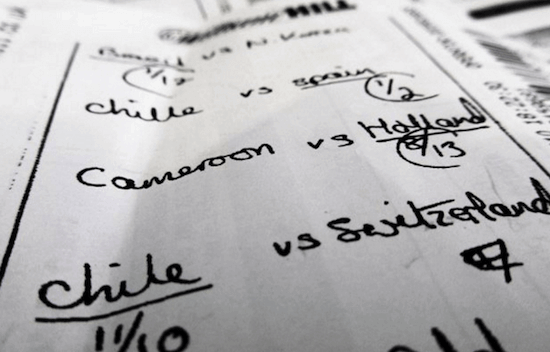 HILL
Brazil vs N. Korea
1/12
chille vs spain
1/2
Cameroon vs Holland
8/13
chile vs Switzerland
11/10